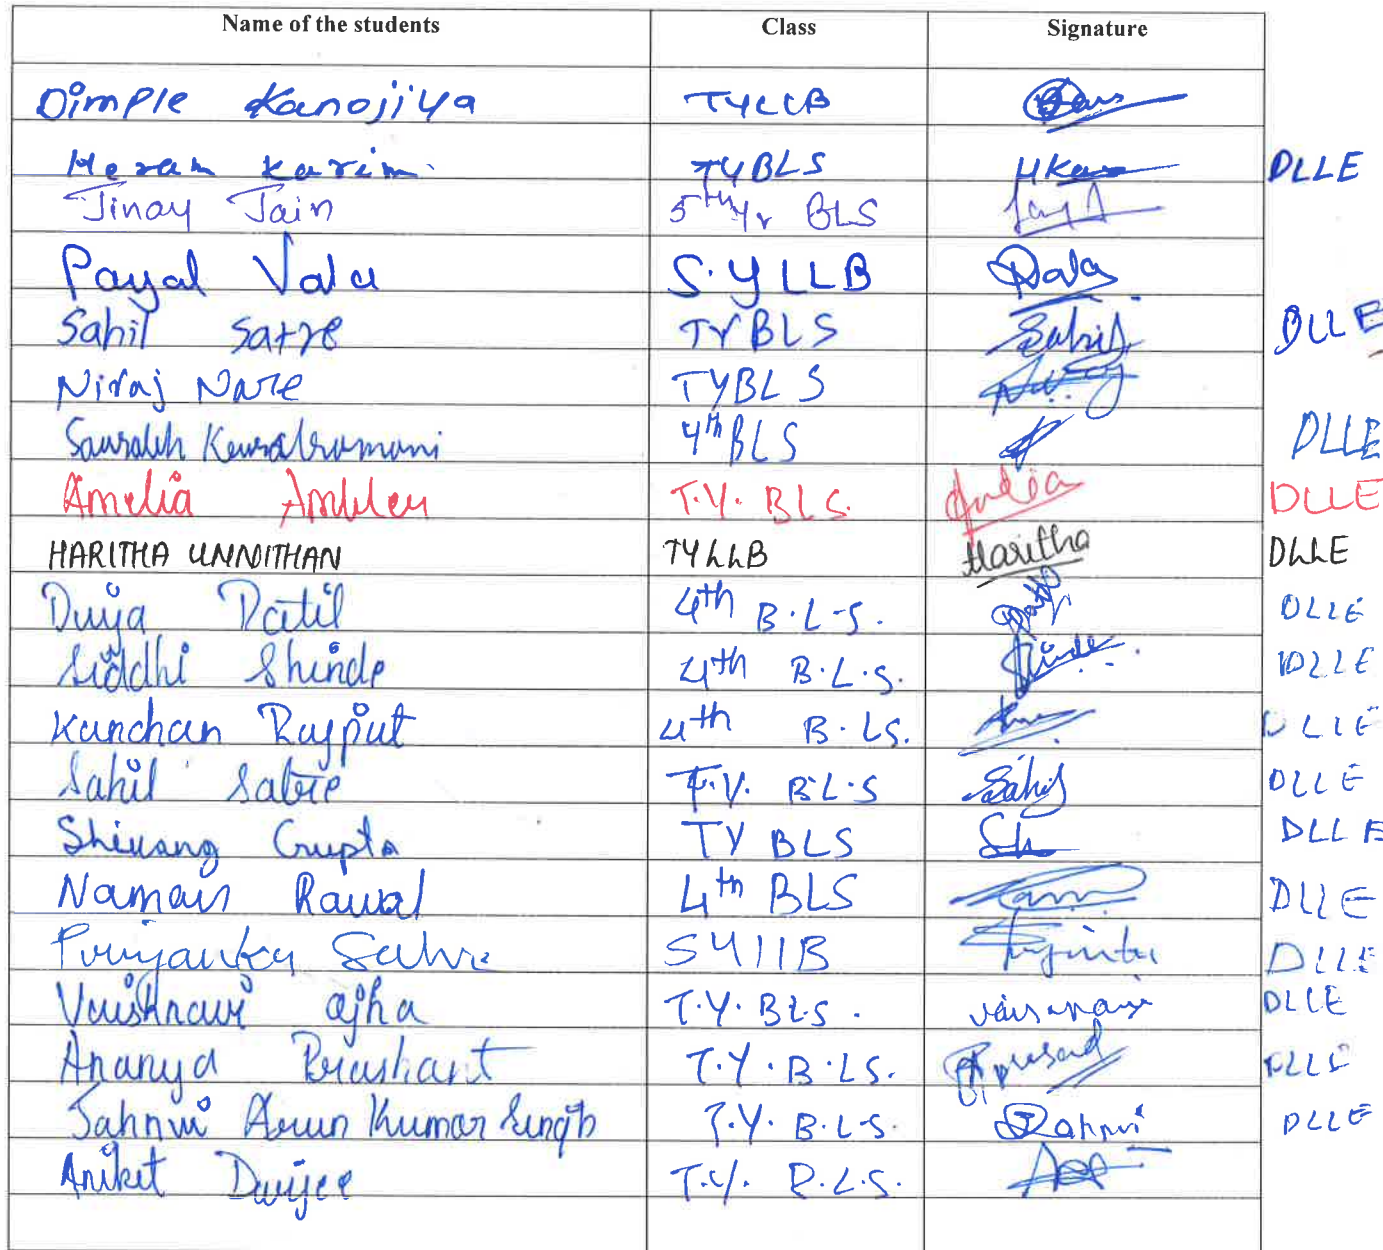 Name of the students Class Signature
Dimple Kanojiya TYLLB
Heram Karim. TYBLS HKa DLLE
Jinay Jain 5th Yr BLS
Payal Vala S.YLLB
Sahil Satre TYBLS Sahil DLLE
Niraj Nare TYBLS
Saurabh Kewalramani 4th BLS DLLE
Amelia T.Y. BLS. DLLE
HARITHA UNNITHAN TYLLB Haritha DLLE
Duja Patil 4th B.L.S. DLLE
Siddhi Shinde 4th B.L.S. Shinde DLLE
Kanchan Rajput 4th B.LS. DLLE
Sahil Satre T.Y. B.L.S Sahil DLLE
Shivang Gupta TY BLS Sh DLLE
Naman Rawal 4th BLS DLLE
Priyanka SYllB DLLE
Vaishnavi ojha T.Y. BLS. Vaishnavi DLLE
Ananya Prashant T.Y.B.LS. DLLE
Jahnvi Arun Kumar Singh T.Y. B.L.S. Jahnvi DLLE
Aniket T.Y. B.L.S.